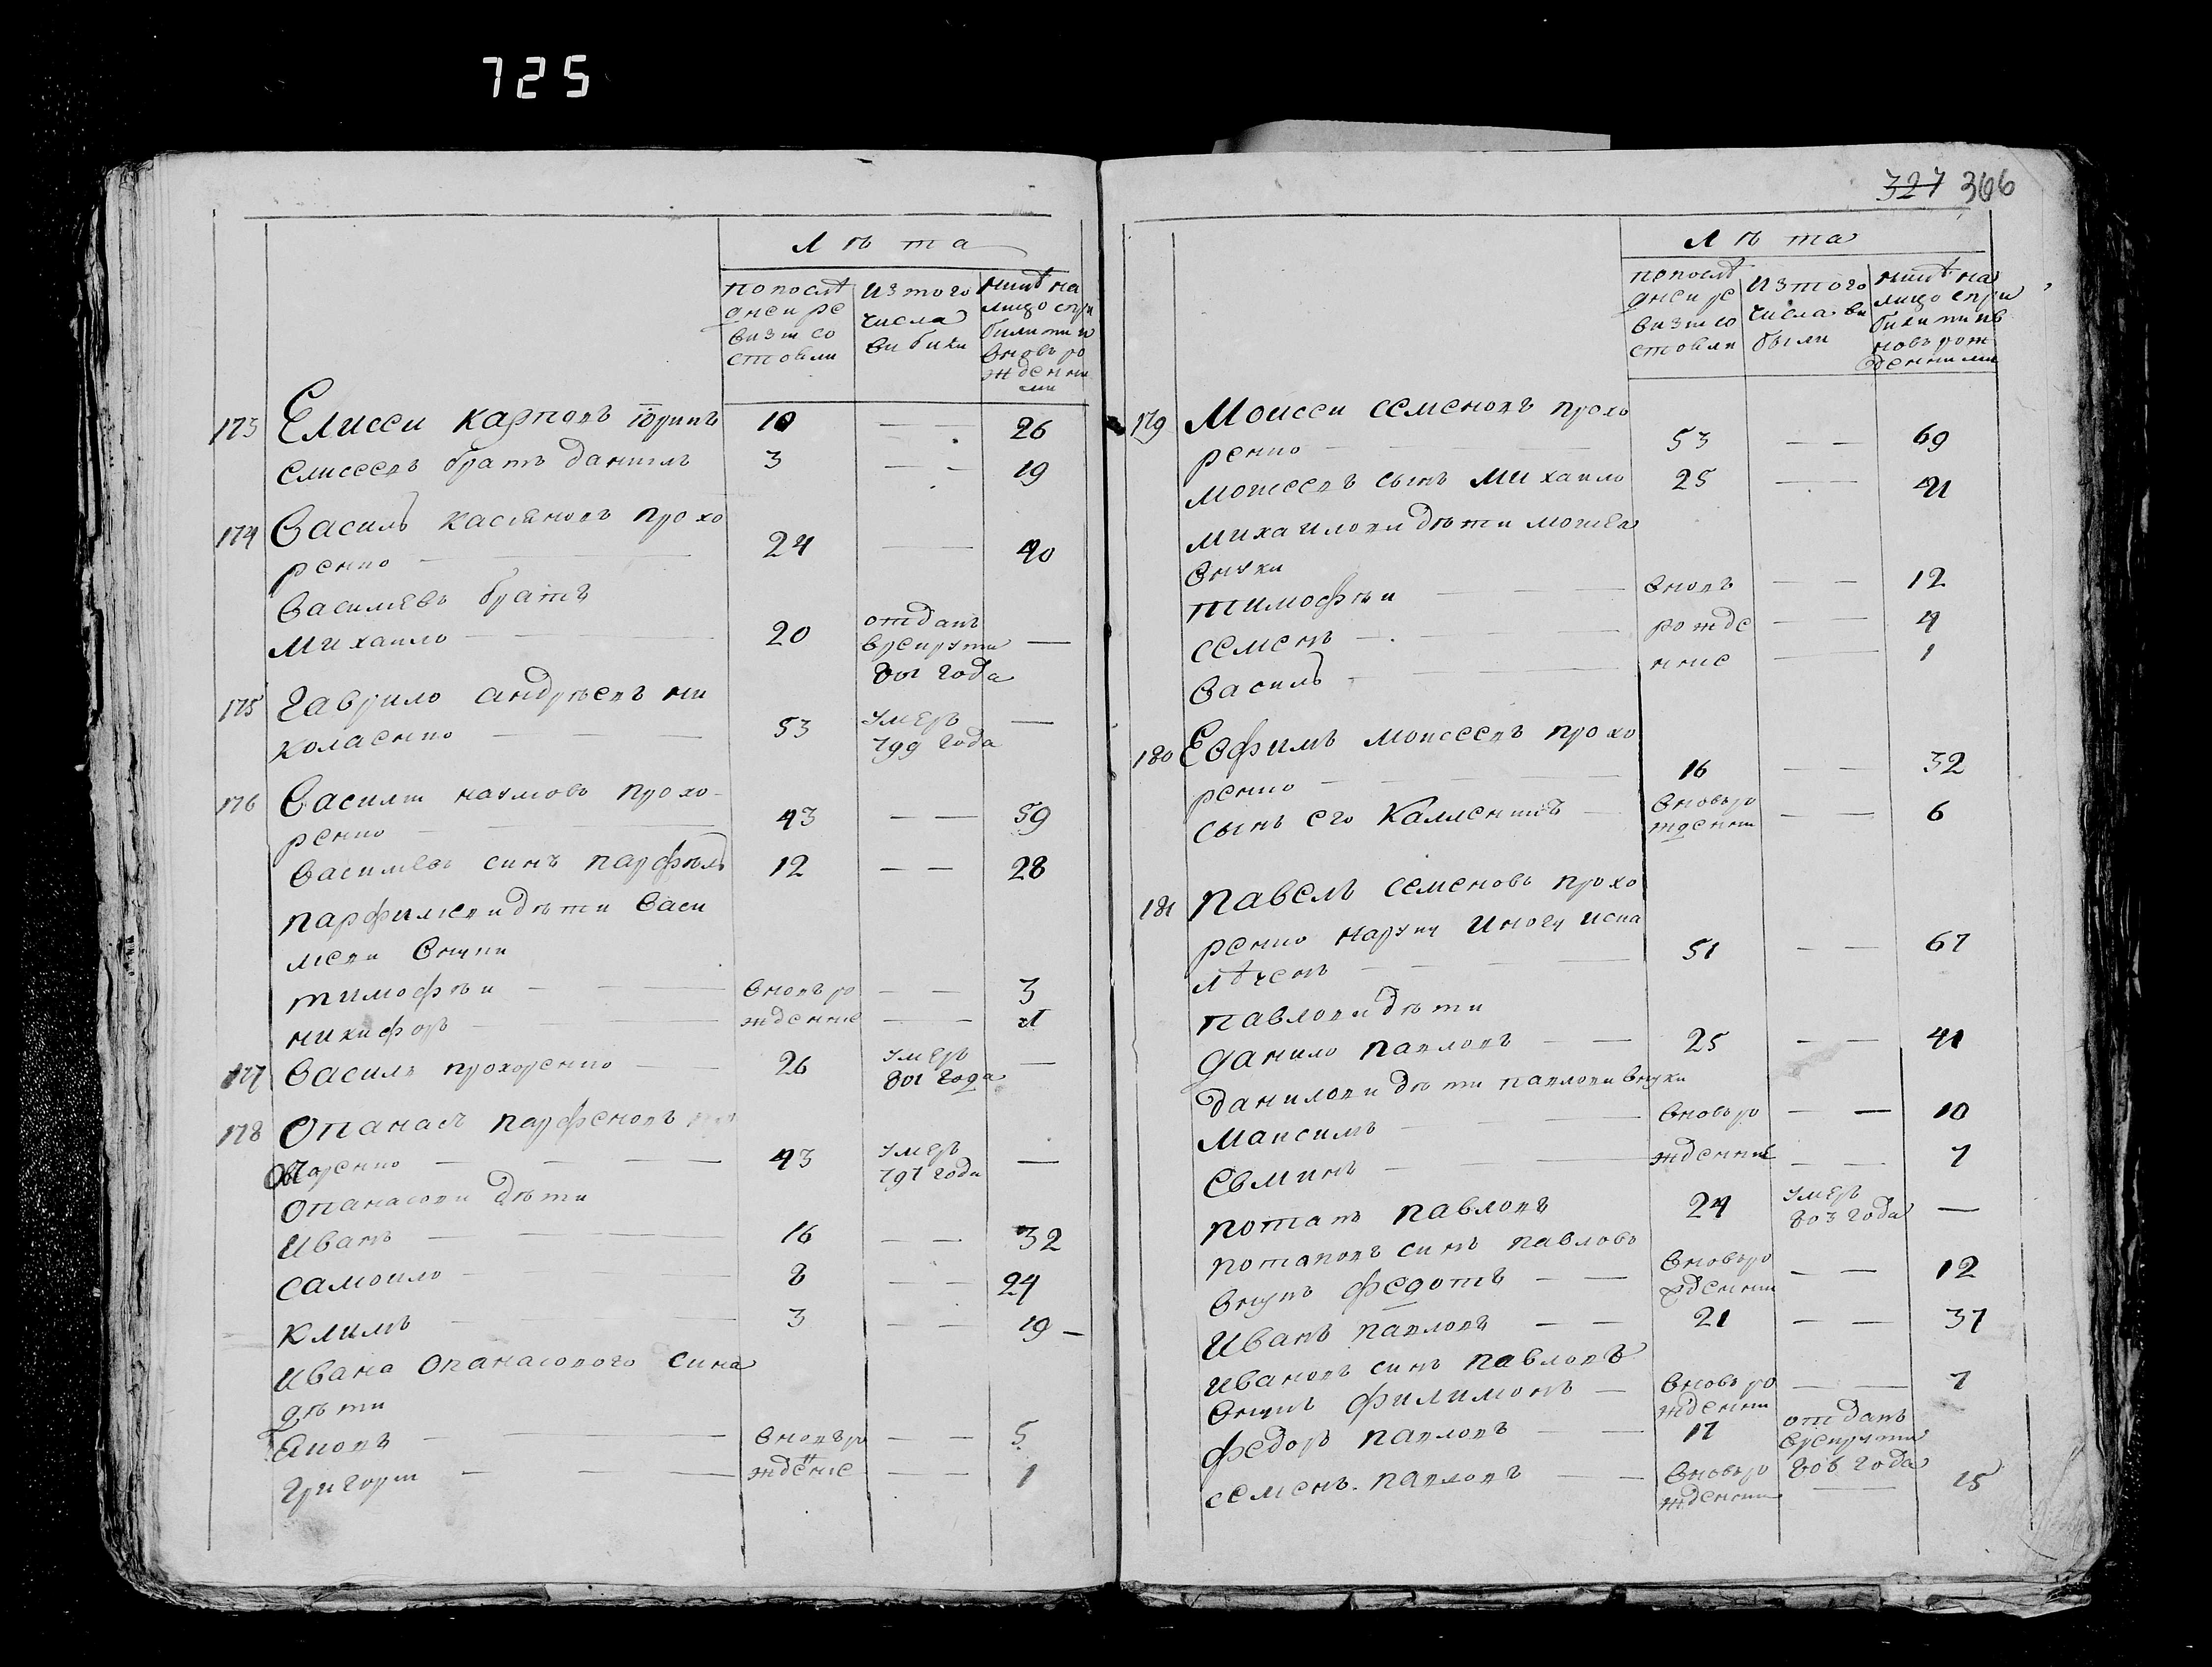 725
Лѣта
по послѣ
дней ре
визiи со
стояли
изтого
числа
вибили
нинѣ на
лицо спри
билими и
вновь ро
жденни
ми
173 Елисей Карповъ Юринъ 10 — 26
Елисеевъ братъ Данилъ 3 — — 19
174 Василь Касяновъ Прохо
ренко — 24 — 40
Василiевъ братъ
Михаило — 20 отданъ врекрути 801 года —
175 Гаврило Андрѣевъ Ни
колаенко — 53 умеръ 799 года —
176 Василiй Наумовъ Прохо-
ренко — 43 — — 59
Василiевъ синъ Парфѣль 12 — — 28
Парфилiеви дѣти Васи
лiеви внуки
Тимофѣй — вновъ ро — — 3
Никифоръ — жденние — — 1
177 Василь Прохоренко — 26 умеръ 801 года —
178 Опанасъ Парфеновъ
Ов
аренко — 43 умеръ 797 года —
Опанасови дѣти
Иванъ — 16 — — 32
Самоило — 8 — — 24
Климъ — 3 — — 19 —
Ивана Опанасового сина
дѣти
Яковъ — вновъ ро — — 5
Григорiй — ждение — — 1
327 366
Лѣта
по послѣ
дней ре
визiи со
стояли
изтого
числа ви
были
нинѣ на
лицо спри
били ми ив
новъ рож
денними
179 Моисей Семеновъ Прохо
ренко — 53 — — 69
Моисеевъ сынъ Михаило 25 — — 41
Михаилови дѣти Моисея
внуки
Тимофѣй — вновъ — — 12
Семенъ — рожде — — 4
Василь — нние — 1
180 Евфимъ Моисеевъ Прохо
ренко — 16 — — 32
Сынъ его Калленикъ — вновь ро жденни — — 6
181 Павелъ Семеновъ Прохо
ренко наруку и ногу иска
лѣченъ — 51 — — 67
Павлови дѣти
Данило Павловъ — — 25 — — 41
Данилови дѣти Павлови внуки
Максимъ — вновъ ро — — 10
Евминъ — жденние — — 7
Потапъ Павловъ 24 умеръ 803 года —
Потаповъ синъ Павловъ
внукъ Федотъ — — вновь ро жденни — — 12
Иванъ Павловъ — — 21 — — 37
Ивановъ синъ Павловъ
внукъ Филимонъ — вновь ро жденни — — 7
Федоръ Павловъ — — 17 отданъ врекрути 806 года
Семенъ Павловъ — — вновь ро жденни — 15